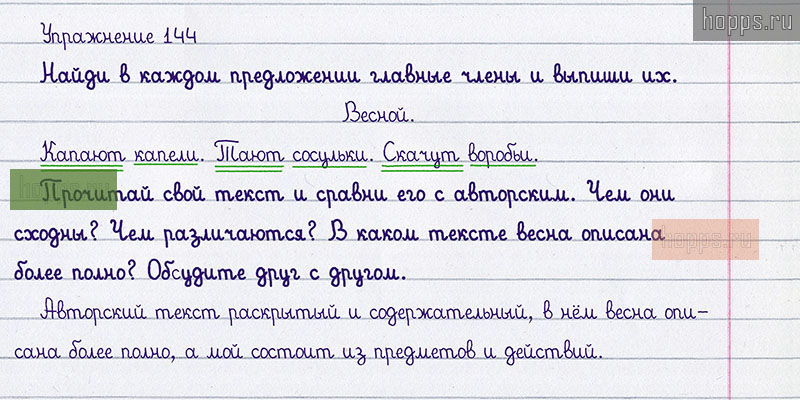 hopps.ru
Упражнение 144
Найди в каждом предложении главные члены и выпиши их.
Весной.
Капают капели. Тают сосульки. Скачут воробьи.
Прочитай свой текст и сравни его с авторским. Чем они
сходны? Чем различаются? В каком тексте весна описана
hopps.ru
более полно? Обсудите друг с другом.
Авторский текст раскрытый и содержательный, в нём весна опи-
сана более полно, а мой состоит из предметов и действий.